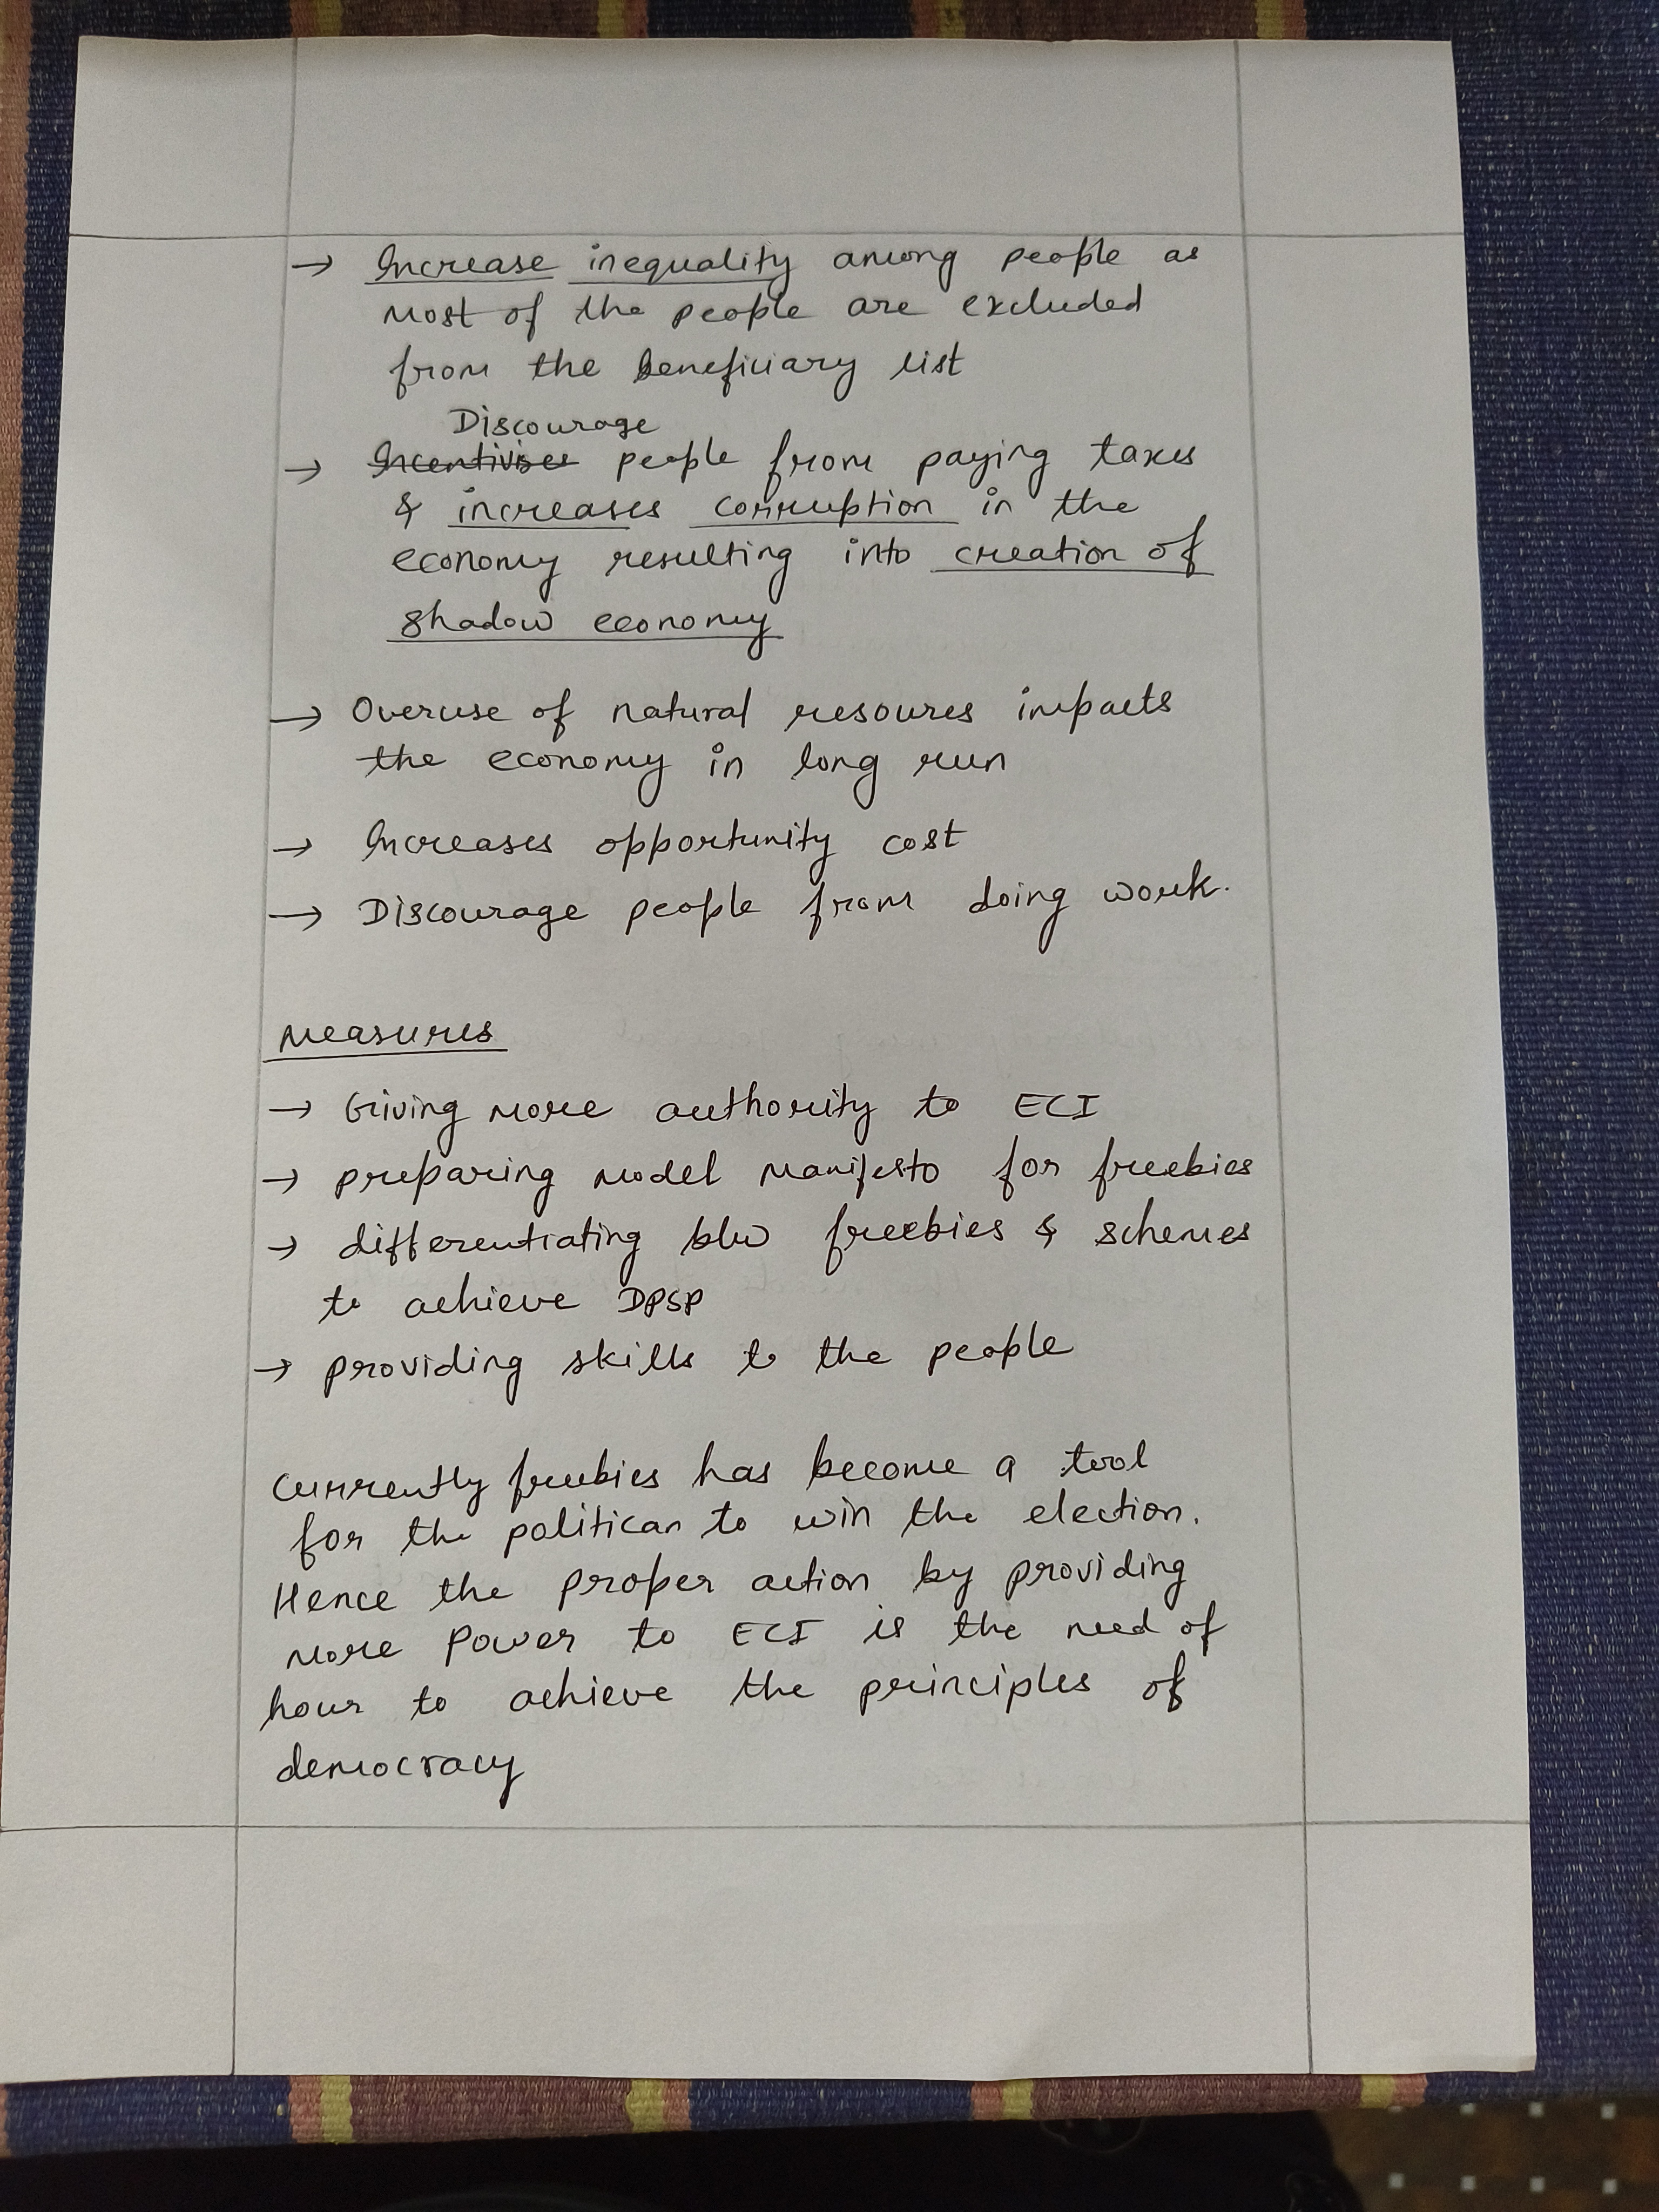 → Increase inequality among people as
most of the people are excluded
from the beneficiary list
Discourage
→ Incentivises people from paying taxes
& increases corruption in the
economy resulting into creation of
shadow economy
→ Overuse of natural resoures impacts
the economy in long run
→ Increases opportunity cost
→ Discourage people from doing work.
Measures
→ Giving more authority to ECI
→ preparing model manifesto for freebies
→ differentiating b/w freebies & schemes
to achieve DPSP
→ providing skills to the people
Currently freebies has become a tool
for the politican to win the election.
Hence the proper action by providing
more power to ECI is the need of
hour to achieve the principles of
democracy